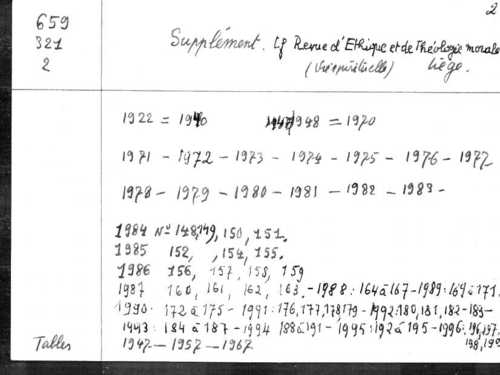 2
659
321
2
Supplément. Cf Revue d'Ethique et de Théologie morale
(Vie spirituelle) Liège.
1922 = 1940 1948 = 1970
1971 - 1972 - 1973 - 1974 - 1975 - 1976 - 1977
1978 - 1979 - 1980 - 1981 - 1982 - 1983 -
1984 No 148, 149, 150, 151.
1985 152, , 154, 155.
1986 156, 157, 158, 159
1987 160, 161, 162, 163. - 1988: 164 à 167 - 1989: 168 à 171.
1990: 172 à 175 - 1991: 176, 177, 178 179 - 1992: 180, 181, 182 - 183 -
1993: 184 à 187 - 1994 188 à 191 - 1995: 192 à 195 - 1996: 196, 197.
Tables 1947 - 1957 - 1967 198, 199